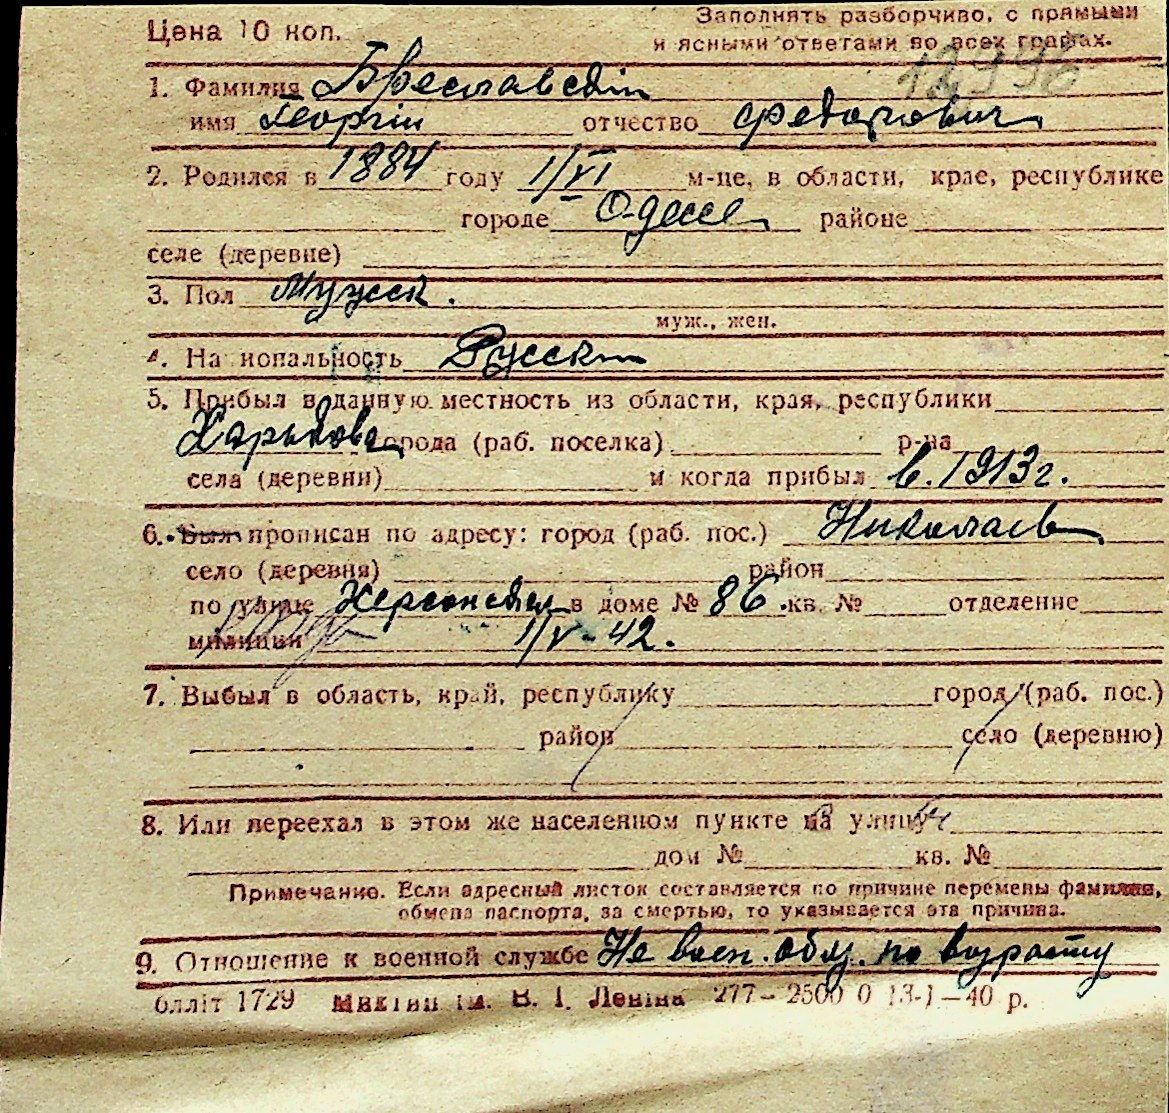 Цена 10 коп.
Заполнять разборчиво, с прямыми
и ясными ответами во всех графах.
1. Фамилия Бреславский
имя Георгий отчество Федорович
2. Родился в 1884 году 1/VI м-це, в области, крае, республике
городе Одессе районе
селе (деревне)
3. Пол Мужск.
муж., жен.
4. На иопальность Русский
5. Прибыл в данную местность из области, края, республики
Харькова города (раб. поселка) р-на
села (деревни) и когда прибыл в. 1913 г.
6. Был прописан по адресу: город (раб. пос.) Николаев
село (деревня) район
по улице Херсонская в доме № 86. кв. № отделение
милиции 1/V-42.
7. Выбыл в область, край, республику город (раб. пос.)
район село (деревню)
8. Или переехал в этом же населенном пункте на улицу
дом № кв. №
Примечание. Если адресный листок составляется по причине перемены фамилии,
обмена паспорта, за смертью, то указывается эта причина.
9. Отношение к военной службе Не воен. обяз. по возрасту
блліт 1729 ім. В. І. Леніна 277-2500 0 13-I-40 р.